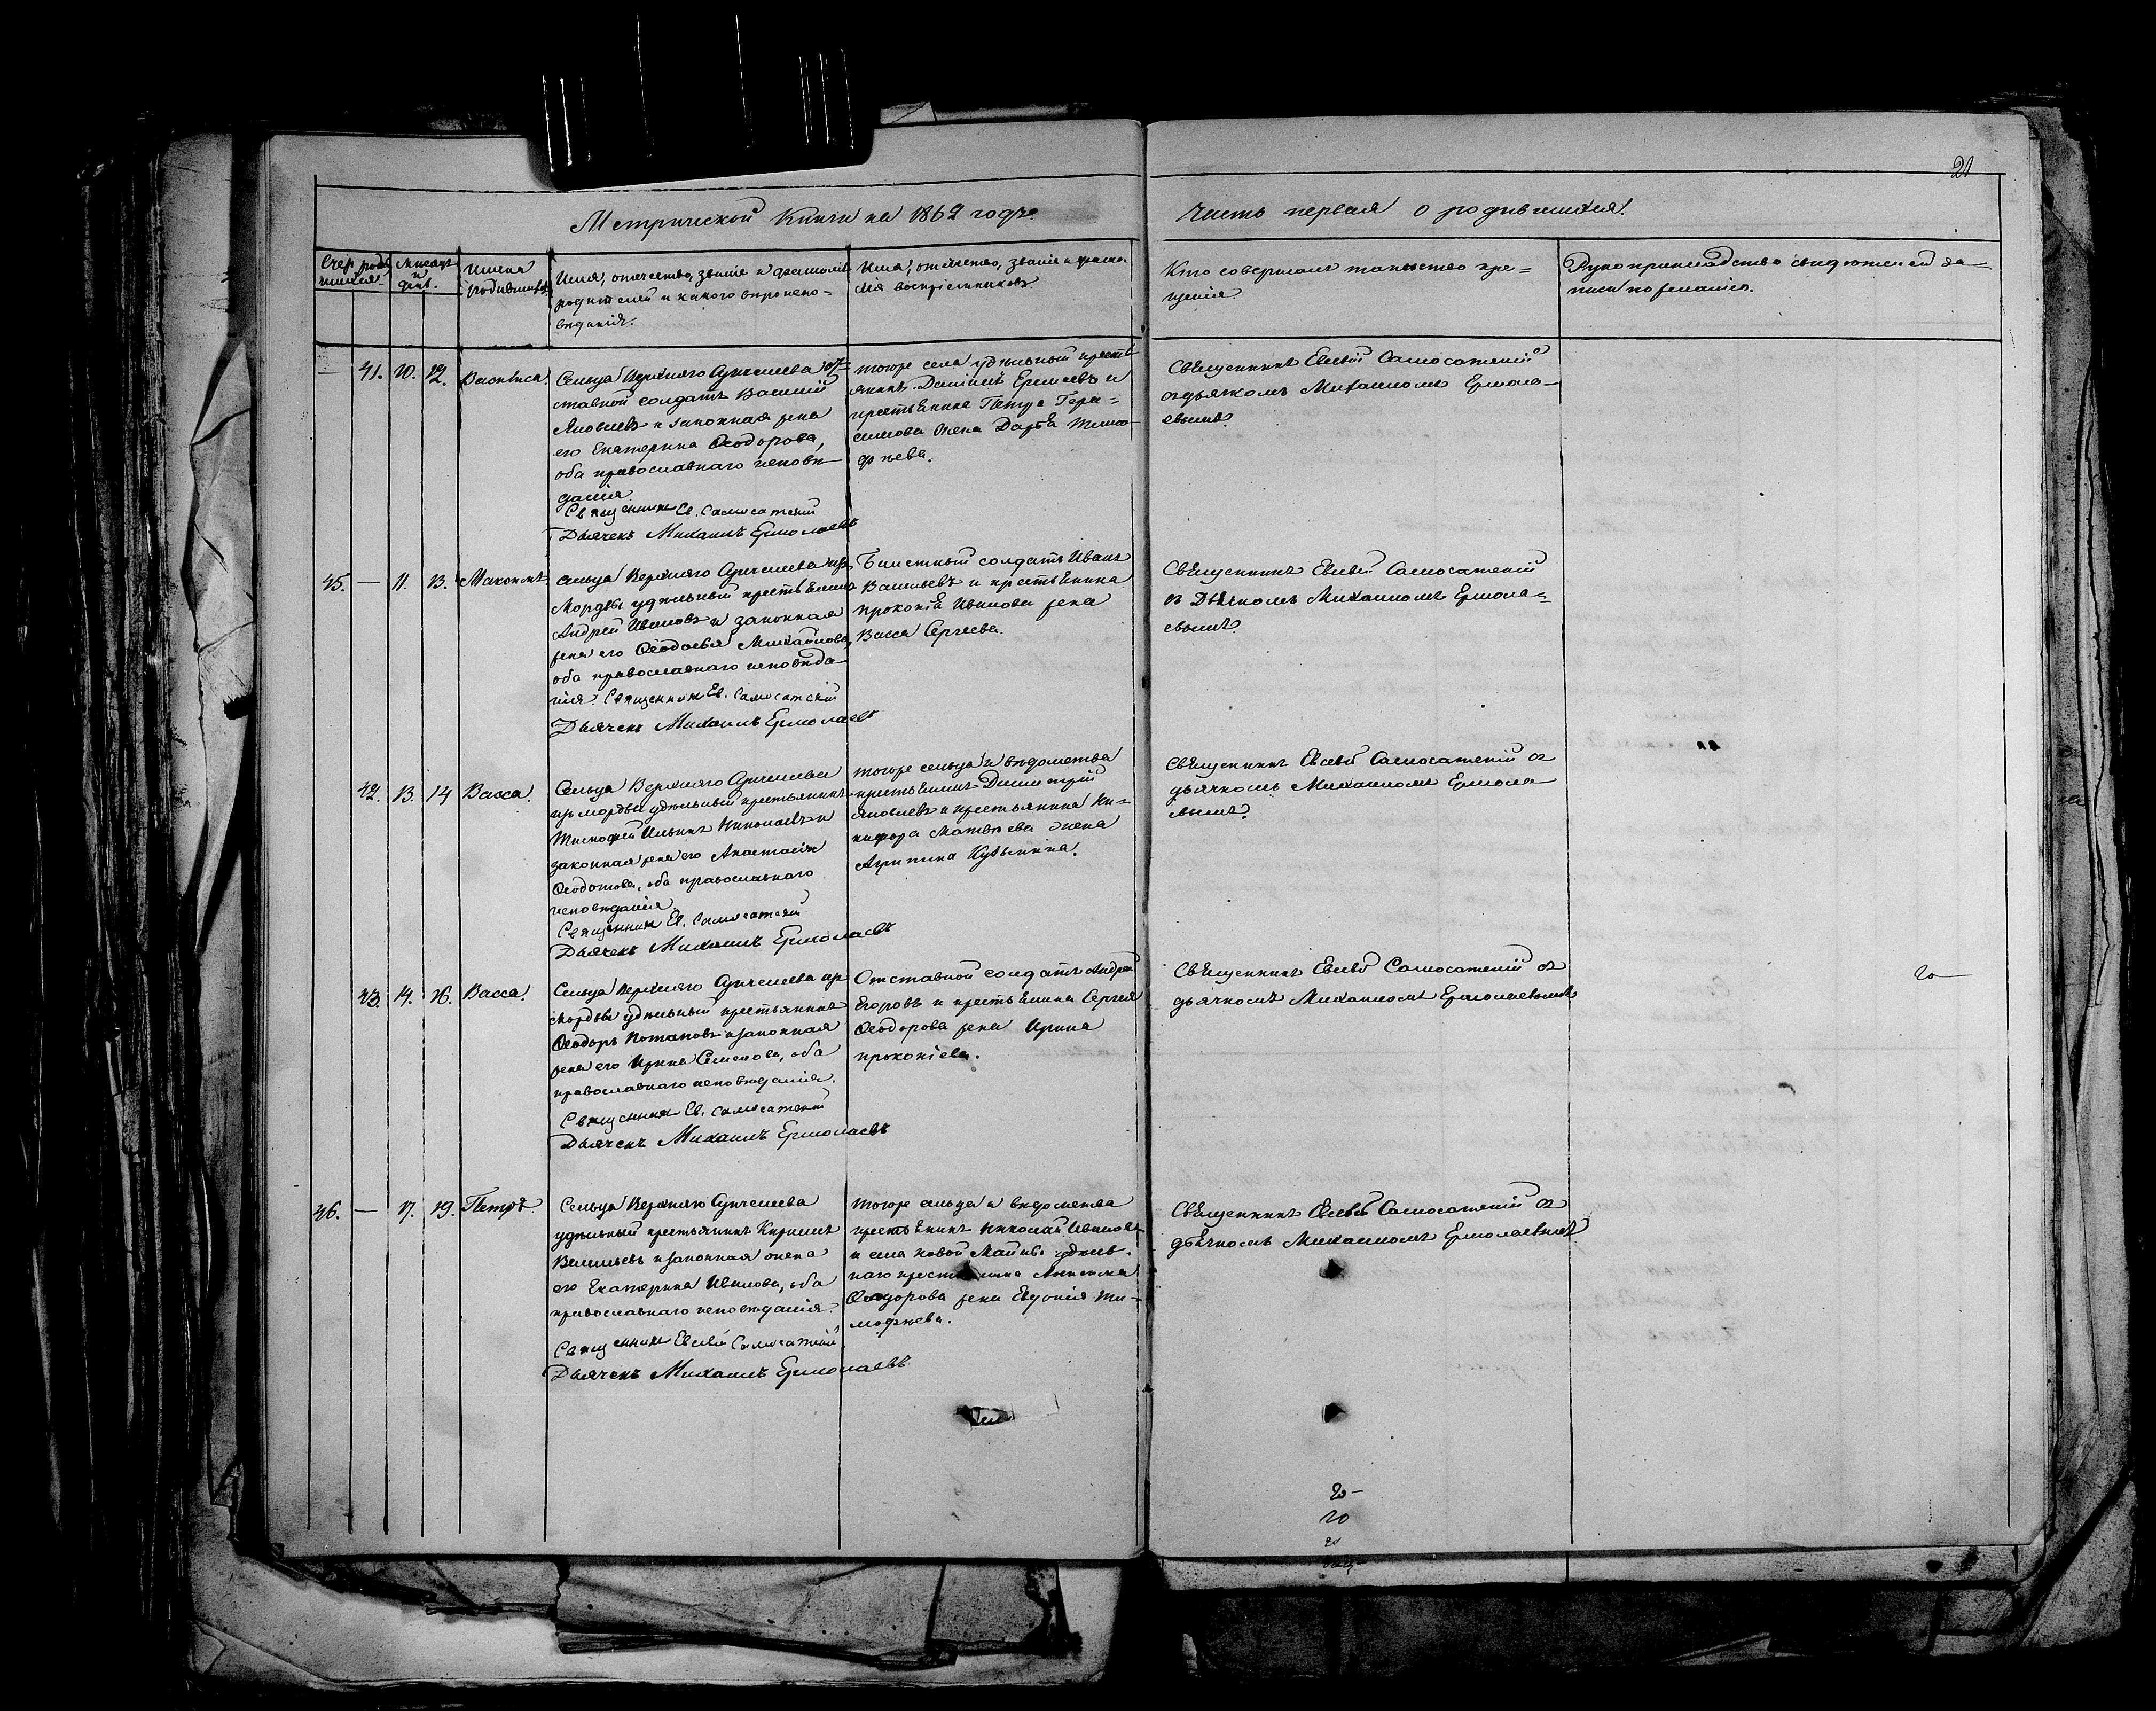 21
Метрической Книги на 1862 годъ.
Часть первая о родившихся.
Счетъ родившихся.
Месяцъ и день.
Имена родившихся
Имя, отечество, званіе и фамилія
родителей и какого вѣроиспо-
вѣданія.
Имя, отечество, званіе и фамилія
воспріемниковъ.
Кто совершалъ таинство кре-
щенія.
Рукоприкладство свидѣтелей за-
писи по желанію.
41. 10. 12.
Сельца Верхняго Якушева от-
ставной солдатъ Василій
Яковлевъ и законная жена
его Екатерина Ѳеодорова,
оба православнаго исповѣ-
данія.
Священникъ Ев. Самосатскій
Дьячекъ Михаилъ Ермолаевъ
тогоже села удѣльный кресть-
янинъ Ермевъ и
крестьянина Петра Гера-
симова жена Дарья Тимо-
фѣева.
Священникъ Евсевій Самосатскій
съ дьячкомъ Михаиломъ Ермола-
евымъ.
45. — 11. 13. Максимъ
Сельца Верхняго изъ
Мордвы удѣльный крестьянинъ
Андрей Ивановъ и законная
жена его Ѳеодосья Михайлова,
оба православнаго исповѣда-
нія. Священникъ Ев. Самосатскій
Дьячекъ Михаилъ Ермолаевъ
Билетный солдатъ Иванъ
Васильевъ и крестьянина
Прокопія Иванова жена
Васса Сергеева.
Священникъ Евсевій Самосатскій
съ Дьячкомъ Михаиломъ Ермола-
евымъ.
42. 13. 14 Васса.
Сельца Верхняго
изъ мордвы удѣльный крестьянинъ
Тимофей Ильинъ Николаевъ и
законная жена его Анастасія
Ѳеодотова, оба православнаго
исповѣданія.
Священникъ Ев. Самосатскій
Дьячекъ Михаилъ Ермолаевъ
тогоже сельца и вѣдомства
крестьянинъ Димитрій
Яковлевъ и крестьянина Ни-
кифора Матвѣева жена
Агрипина Кузьмина.
Священникъ Евсевій Самосатскій съ
дьячкомъ Михаиломъ Ермола-
евымъ.
43. 14. 16. Васса.
Сельца Верхняго изъ
мордвы удѣльный крестьянинъ
Ѳеодоръ Потаповъ и законная
жена его Ирина Семенова, оба
православнаго исповѣданія.
Священникъ Ев. Самосатскій
Дьячекъ Михаилъ Ермолаевъ
Отставной солдатъ Андрей
Егоровъ и крестьянина Сергея
Ѳеодорова жена Ирина
Прокопіева.
Священникъ Евсевій Самосатскій съ
дьячкомъ Михаиломъ Ермолаевымъ
20—
46. — 17. 19. Петръ.
Сельца Верхняго
удѣльный крестьянинъ Кирилъ
Васильевъ и законная жена
его Екатерина Иванова, оба
православнаго исповѣданія.
Священникъ Евсевій Самосатскій
Дьячекъ Михаилъ Ермолаевъ
тогоже сельца и вѣдомства
крестьянинъ Николай Ивановъ
и села Новой Майны удѣль-
наго крестьянина
Ѳеодорова жена Евдокія Ти-
мофѣева.
Священникъ Евсевій Самосатскій съ
дьячкомъ Михаиломъ Ермолаевымъ
20—
20
20